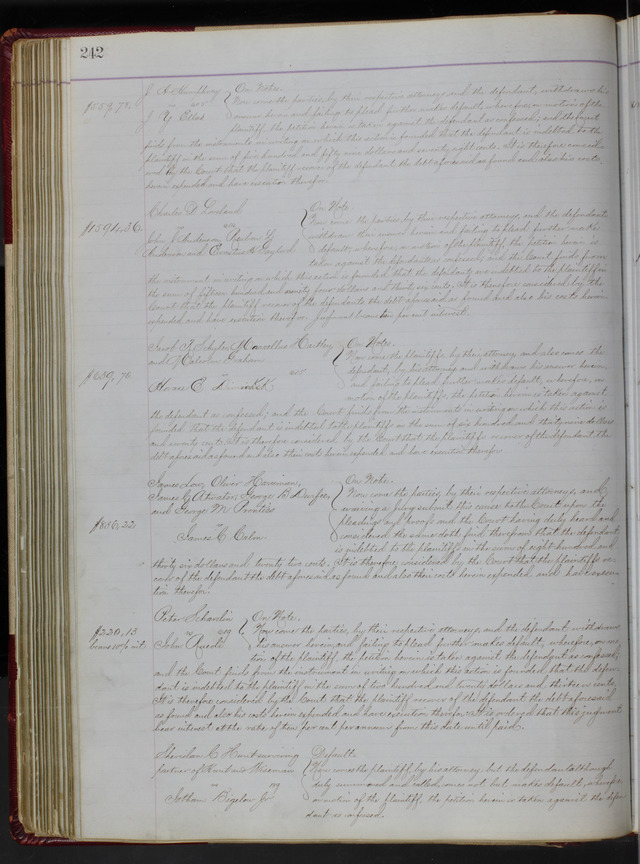 242
On Note.
$559,78. vs Now come the parties, by their respective attorneys and the defendant, withdraws his
J. Y. Elles answer herein and failing to plead further makes default, wherefore, on motion of the
plaintiff, the petition herein is taken against the defendant as confessed, and the Court
finds from the instrument in writing on which this action is founded that the defendant is indebted to the
plaintiff in the sum of five hundred and fifty nine dollars and seventy eight cents. It is therefore considered
by the Court that the plaintiff recover of the defendant the debt aforesaid as found and also his costs
herein expended and have execution therefor.
Charles D. On Note
$1594,36. vs Now come the parties, by their respective attorneys, and the defendants
John J. Anderson, Reuben Y. withdraw their answer herein and failing to plead further make
Anderson and Gaylord default, wherefore, on motion of the plaintiff, the petition herein is
taken against the defendants as confessed, and the Court finds from
the instrument in writing on which this action is founded, that the defendants are indebted to the plaintiff in
the sum of fifteen hundred and ninety four dollars and thirty six cents. It is therefore considered by the
Court that the plaintiff recover of the defendants the debt aforesaid as found and also his costs herein
expended and have execution therefor. Judgment bears ten per cent interest.
Jacob Marcellus Hartley On Note.
and Malcolm Graham Now come the plaintiffs by their attorney and also comes the
$639,70 vs defendant, by his attorney and withdraws his answer herein,
Horace E. and failing to plead further makes default, wherefore, on
motion of the plaintiffs, the petition herein is taken against
the defendant as confessed, and the Court finds from the instrument in writing on which this action is
founded that the defendant is indebted to the plaintiffs in the sum of six hundred and thirty nine dollars
and seventy cents. It is therefore considered by the Court that the plaintiffs recover of the defendant the
debt aforesaid as found and also their costs herein expended and have execution therefor.
James Low, Oliver Harriman, On Note.
James Atwater, George B. Now come the parties, by their respective attorneys, and
and George M. Prentiss waiving a jury submit this cause to the Court upon the
$836,22 vs pleadings and proofs and the Court having duly heard and
James C. considered the same doth find therefrom that the defendant
is indebted to the plaintiffs in the sum of eight hundred and
thirty six dollars and twenty two cents. It is therefore considered by the Court that the plaintiffs re-
cover of the defendant the debt aforesaid as found and also their costs herein expended and have execu-
tion therefor.
Peter On Note.
$220,13 vs Now come the parties, by their respective attorneys, and the defendant withdraws
bears 10% int. John his answer herein, and failing to plead further makes default, wherefore, on mo-
tion of the plaintiff, the petition herein is taken against the defendant as confessed,
and the Court finds from the instrument in writing on which this action is founded, that the defen-
dant is indebted to the plaintiff in the sum of two hundred and twenty dollars and thirteen cents.
It is therefore considered by the Court that the plaintiff recover of the defendant the debt aforesaid
as found and also his costs herein expended and have execution therefor. It is adjudged that this judgment
bear interest at the rate of ten per cent per annum from this date until paid.
Sheridan C. Hunt surviving Default.
partner of Hunt and Wiseman Now comes the plaintiff, by his attorney but the defendant although
vs duly summoned and called, comes not but makes default, wherefore
Jotham Bigelow Jr on motion of the plaintiff, the petition herein is taken against the defen-
dant as confessed.